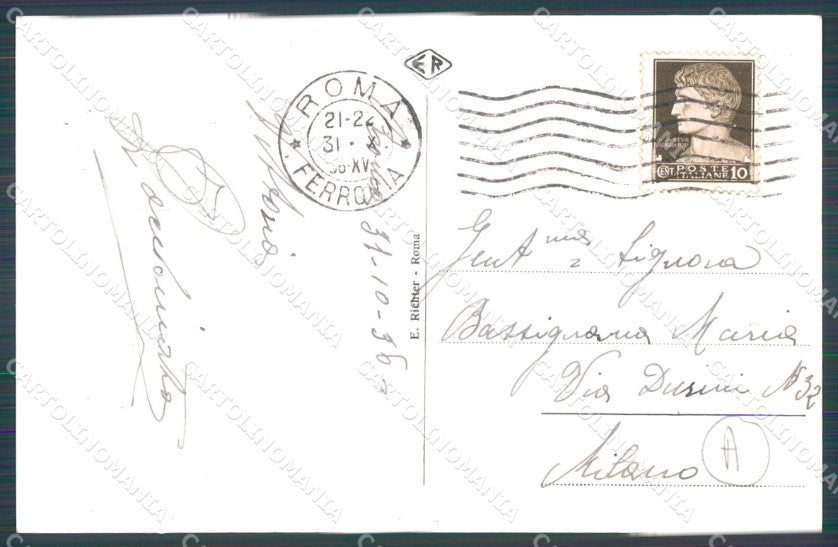 ER
ROMA
21-22
31 · X
36·XV
FERROVIA
POSTE
ITALIANE
CENT. 10
Roma 31-10-36
E. Richter - Roma
Gent.ma Signora
Bassignana Maria
Via Durini N 32
Milano
A
CARTOLINOMANIA